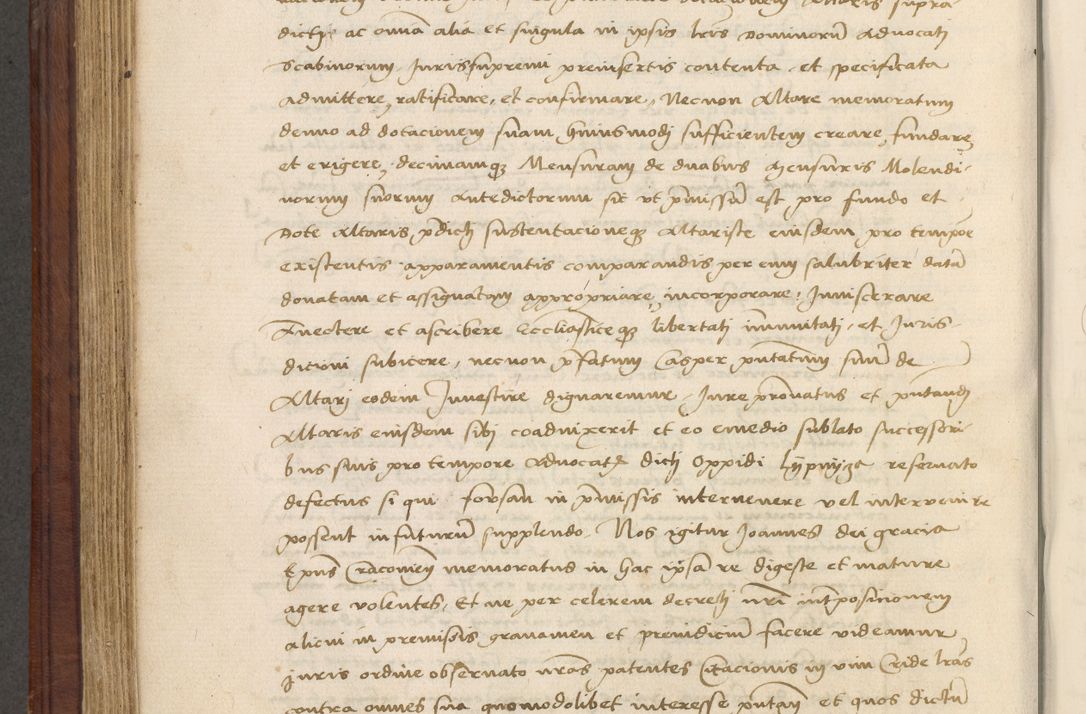 dictj ac omnia alia et singula in ipsis lrīs Dominorū Advocatj
Scabinorum Jurissupremi preinsertis contenta et specificata
admittere, ratificare, et confirmare, Necnon Altare memoratum
denuo ad dotacionem suam huiusmodj sufficientem creare, fundare,
et erigere, decimamqȝ Mensuram de duabus Mensuris Molendi-
norum suorum Antedictorum sic ut pmissū est pro fundo et
Dote Altaris pdictj sustentacioneqȝ Altariste eiusdem pro tempore
existentis apparamentis comparandis per eum salubriter datā
donatam et assignatam appropriare, incorporare, Inuiscerare
Annectere et ascribere Eccliasticeqȝ libertatj immunitatj, et Juris-
dicioni subicere, necnon pfatum Casper pntatum siue de
Altarj eodem Inuestire dignaremur, Jure pronatus et pntandj
Altaris eiusdem sibj coadvixerit et eo emedio sublato successori-
bus suis pro tempore Advocatȝ dictj Oppidi lypnyga reseruato
defectus si qui forsan in pmissis interuenere vel intervenire
possent in futurū supplendo. Nos igitur Joannes dei gracia
Epus Cracovien memoratus in hac ipsa re digeste et mature
agere volentes, Et ne per celerem decretj nrī intposicionem
alicui in premissis grauamen et preiudiciū facere videamur
Juris ordine obseruato nrās patentes Citacionis in vim Cride lrās
contra omnes sua quomodolibet interesse putan et quos dictū